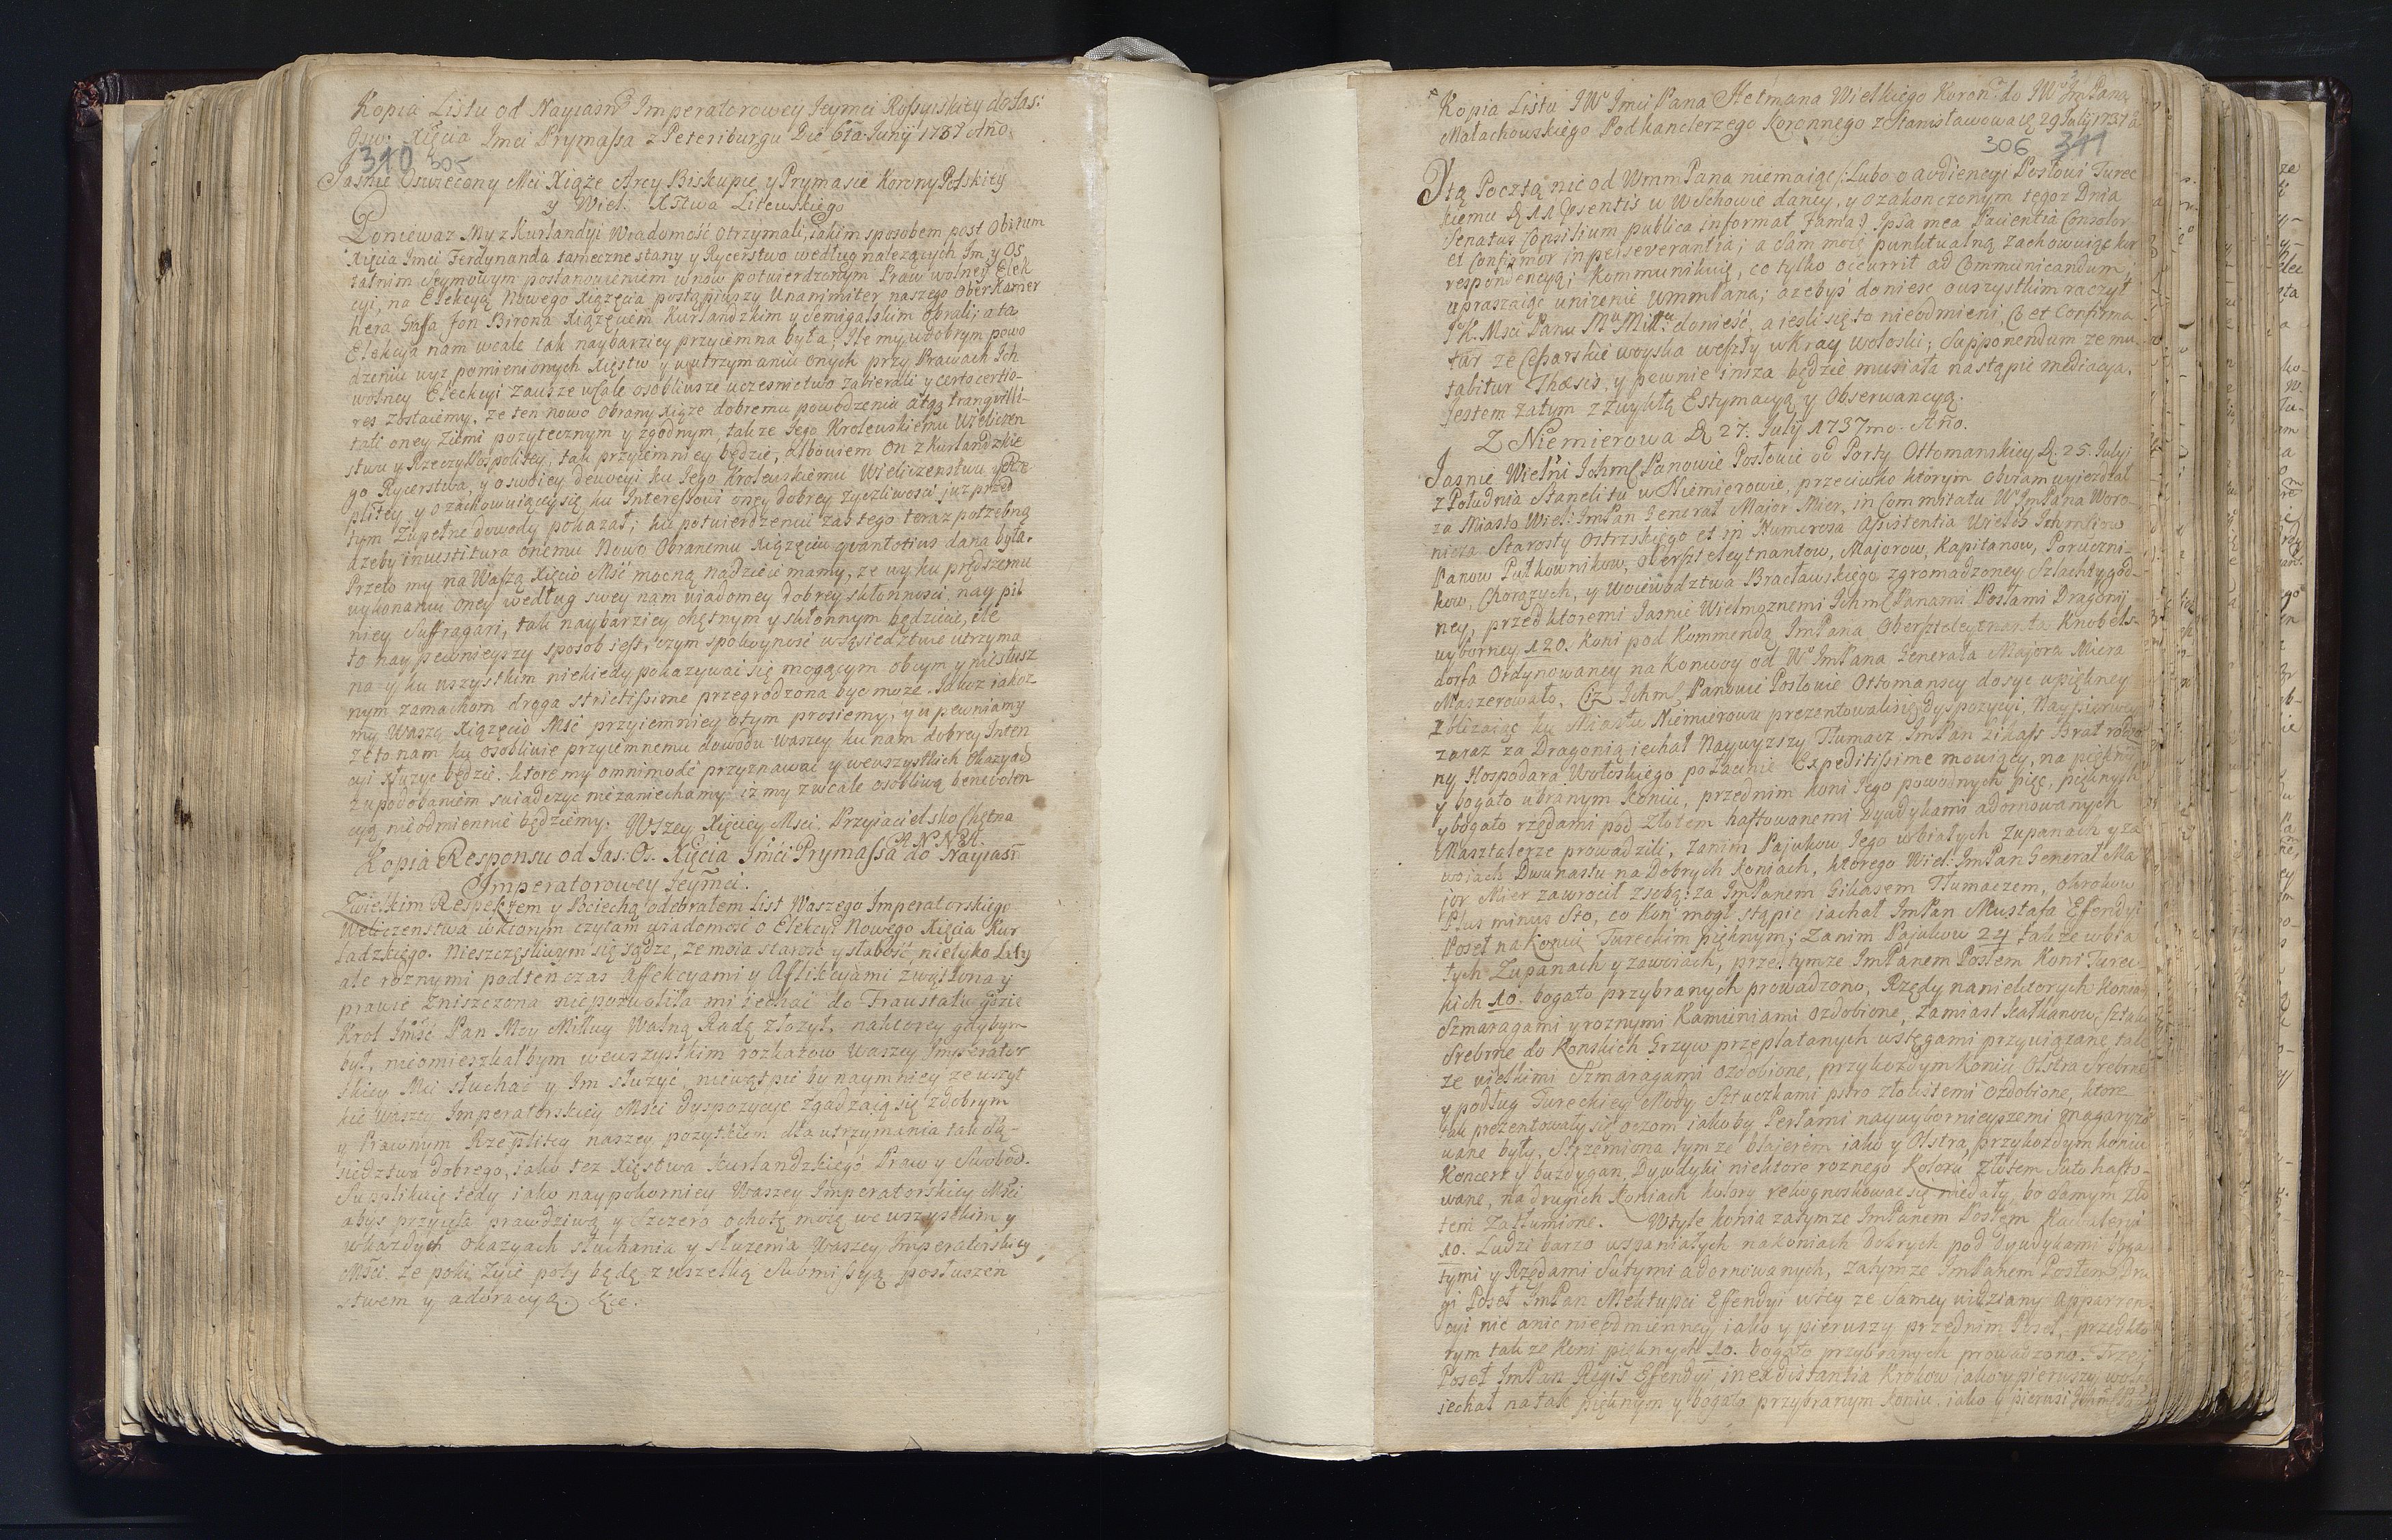 Kopia Listu od Nayiasn: Imperatorowey Jeymci Rossyiskiey do Jas:
Osw: Xięcia Imci Prymassa z Petersburga Die 6ta Junij 1737 Año.
310 305
Jasnie Oswiecony Mci Xiąze Arcy Biskupie y Prymasie Korony Polskiey
y Wiel: Xstwa Litewskiego
Poniewaz My z Kurlandyi Wiadomość otrzymali, iakim sposobem post Obitum
Xięcia Imci Ferdynanda tameczne stany y Rycerstwo według nalezących Im y Os
tatnim Seymowym postanowieniem wnow potwierdzonym Praw wolney Elek
cyi, na Elekcyą Nowego Xiązęcia postąpiwszy Unanimiter naszego Ober Kamer
hera Graffa Jon Birona Xiązęciem Kurlandzkim y Semigalskim obrali; a ta
Elekcya nam wcale iak naybarziey przyiemna była; Ile my w dobrym powo
dzeniu wyz pomienionych Xięstw y w utrzymaniu onych przy Prawach Ich
wolney Elekcyi zawsze wcale osobliwsze uczesnictwo zabierali y certo certio-
res zostaiemy, ze ten nowo obrany Xiąze dobremu powodzeniu atqz tranqvilli-
tati oney Ziemi pozytecznym y zgodnym, takze Jego Krolewskiemu Wieliczen
stwu y Rzeczy Pospolitey, tak przyiemniey będzie, albowiem On z Kurlandzkie
go Rycerstwa, y o swoiey dewocyi ku Jego Krolewskiemu Wieliczenstwu y Rze
plitey y o zachowuiącey się ku Interessowi oney dobrey zyczliwosci juz przed
tym Zupełne dowody pokazał; ku potwierdzeniu zas tego teraz potrzebną
azeby inwestitura onemu Nowo Obranemu Xiązęciu qvantotius dana była.
Przeto my na Waszą Xięcio Mść mocną nądzieię mamy, ze wy ku prędszemu
wykonaniu oney według swey nam wiadomey dobrey skłonnosci nay pil
niey Suffragari, tak naybarziey chętnym y skłonnym będziecie, ile
to nay pewnieyszy sposob iest, czym spokoyność w sąsiedztwie utrzyma
na y ku wszystkim niekiedy pokazywac się mogącym obcym y niesłusz
nym zamachom droga strictissime przegrodzona byc moze. Jakoz iakoz
my Waszą Xiązęcio Mść przyiemniey o tym prosiemy, y upewniamy
ze to nam ku osobliwie przyiemnemu dowodu waszey ku nam dobrey Inten
cyi słuzyc będzie, ktore my omnimodé przyznawac y we wszystkich Okazyach
z upodobaniem swiadczyc niezaniechamy iz my z wcale osobliwą benevolen
cyą nieodmiennie będziemy. Wszey Xięciey Msci. Przyiacielsko Chętna
ANNA.
Kopia Responsu od Jas: Os. Xięcia Jmci Prymassa do Nayiasn
Imperatorowey Jeymci.
Zwielkim Respektem y Pociechą odebrałem List Waszego Imperatorskiego
Weliczenstwa w ktorym czytam wiadomość o Elekcyi Nowego Xięcia Kur
ladzkiego. Nieszczęsliwym się sądze, ze moia starość y słabość nietyko Laty
ale roznymi podten czas Affekcyami y Aflikcyami zwątlona y
prawie zniszczona niepozwoliła mi iechać do Fraustatu gdzie
Krol Jmść Pan Moy Miłłuy Walną Radę złozył, naktorey gdybym
był, nieomieszkałbym wewszystkim rozkazow Waszey Imperator
skiey Mci słuchać y Im słuzyć, niewątpię by naymniey ze wszyt
kie Waszey Imperatorskiey Mści dyspozycye zgadzaią się zdobrym
y Prawnym Rzeplitey naszey pozytkiem dla utrzymania tak są-
siedztwa dobrego, iako tez Xięstwa Kurlandzkiego Praw y Swobod.
Supplikuię tedy iako naypokorniey Waszey Imperatorskiey Mści
abys przyięła prawdziwą y Szczerą ochotę moię we wszystkim y
w kazdych okazyach słuchania y słuzenia Waszey Imperatorskiey
Mści. Ze poki zyię poty będę z wszelką Submissyą, posłuszen
stwem y adoracyą. &ce.
Kopia Listu JW Imci Pana Hetmana Wielkiego Koron: do JW ImPana
Małachowskiego Podkanclerzego Koronnego z Stanisławowa D 29 Julij 1737 a
306 311
Jtą Pocztą nic od WmmPana niemaiąc /: Lubo o audiencyi Posłowi Turec
kiemu D. 11 psentis u Wschowie daney, y o zakonczonym tegoz Dnia
Senatus Consilium publica informat Fama :/ Ipsa mea Patientia Consolor
et Confirmor in perseverantia; a Sam moię punktualną zachowuiąc kor
respondencyą; Kommunikuię, co tylko occurrit ad Communicandum;
upraszaiąc unizenie WmmPana; azebyś doniesc o wszystkim raczył
Jo K. Msci Panu Mu Miłłu: donieść, a iesli się to nieodmieni, Co et Confirma
tur ze Cesarskie woyska weszły w kray wołoski; Supponendum ze mu
tabitur Thesis, y pewnie insza będzie musiała nastąpic mediacya,
Jestem zatym z zwykłą Estymacyą y Obserwancyą.
Z Niemierowa D. 27. Julij 1737mo. Año.
Jasnie Wielni Ichmsc Panowie Posłowie od Porty Ottomanskiey D. 25. Julyi
z Południa Staneli tu w Niemierowie, przeciwko ktorym obviam wyiezdzał
za Miasto Wiel: ImPan General Major Mier, in Commitatu W ImPana Woro
nicza Starosty Ostrzskiego et in Numerosa Assistentia Wielo Ichmsciow
Panow Pułkownikow, Obersztleytnantow, Majorow, Kapitanow, Poruczni-
kow, Chorązych, y Woiewodztwa Bracławskiego zgromadzoney Szlachty god-
ney, przed ktoremi Jasnie Wielmoznemi Ichmsc Panami Posłami Dragonij
wyborney 120. Koni pod Kommendą ImPana Obersztleytnanta Knobels-
dorfa Ordynowaney na Konwoy od W ImPana Generala Majora Miera
Maszerowało. Ciz Ichmsc Panowie Posłowie Ottomanscy dosyc w piękney
zblizaiąc ku Miastu Niemirowu prezentowali się dyspozycyi, Naypierwey
zaraz za Dragonią iechał Naywyzszy Tłumacz ImPan Gikass Brat rodzo
ny Hospodara Wołoskiego połacinie Expeditissime mowiący, na pięknym
y bogato ubranym Koniu, przed nim koni Jego powodnych pięc, pięknych
y bogato rzędami pod złotem haftowanemi Dywdykami adornowanych
Masztalerze prowadzili, zanim Pajukow Jego w białych zupanach y za
woiach Dwunastu na Dobrych Koniach, ktorego Wiel: ImPan General Ma
jor Mier zawrocił z sobą; za ImPanem Gikasem Tłumaczem, o krokow
Plus minus Sto, co koń mogł stąpic iachał ImPan Mustafa Effendyi
Poseł na koniu Tureckim pięknym; Zanim Pajukow 24 takze w bia
łych Zupanach y zawoiach, przed tymze ImPanem Posłem Koni Turec-
kich 10. bogato przybranych prowadzono, Rzędy na niektorych Koniach
Szmaragami y roznymi Kamieniami ozdobione, Zamiast Kałkanow, Sztuki
Srebrne do Konskich Grzyw przeplatanych wstęgami przywiązane, tak
ze wielkimi Szmaragami ozdobione, przy kozdym Koniu Olstra Srebrne
y podług Tureckiey Mody Sztuczkami pstro złocistemi Ozdobione, ktore
tak prezentowały się oczom iakoby Perłami naywybornieyszemi
wane były, Strzemiona tymze blajerem iako y Olstra, przy kozdym koniu
Koncerz y buzdygan, Dywdyki niektore roznego Koloru, złotem Suto hafto-
wane, na drugich Koniach koloru rekognoskowac się niedały, bo samym zło
tem zatłumione. Wtyle konia zatymze ImPanem Posłem Kawaleryi
10. Ludzi barzo wspaniałych na koniach dobrych pod dywdykami boga
tymi y Rzędami Sutymi adornowanych, zatymze ImPanem Posłem Dru
gi Poseł ImPan Mektupci Effendyi wtey ze Samey widziany apparren
cyi nic anic nieodmienney iako y pierwszy przed nim Poseł, przed kto
rym takze koni pięknych 10. bogato przybranych prowadzono. Trzeci
Poseł ImPan Regis Efendyi in ea distantia Krokow iako y pierwszy
iechał na tak pięknym y bogato przybranym koniu, iako y pierwsi